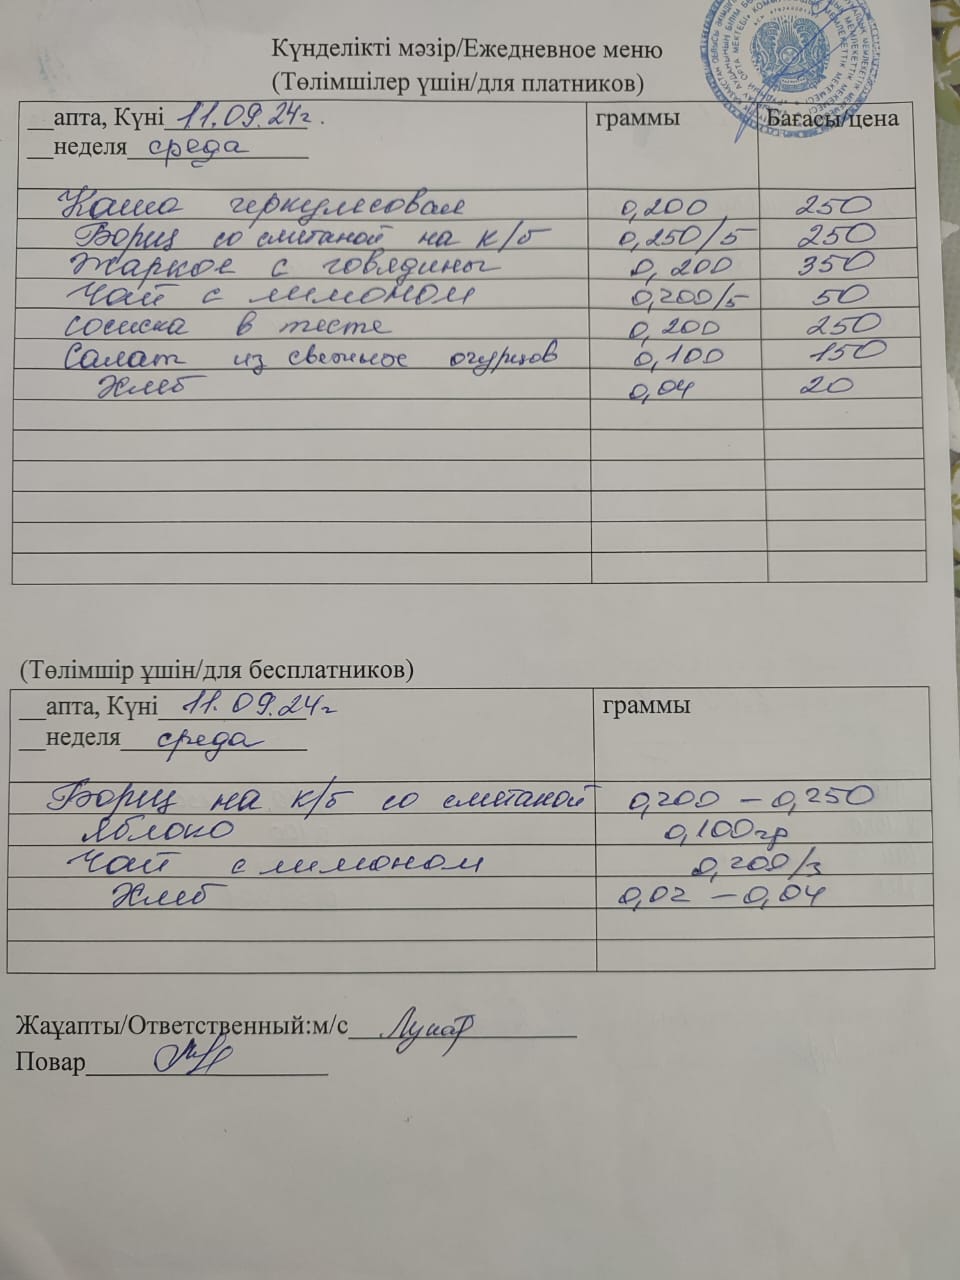 Күнделікті мәзір/Ежедневное меню
(Төлімшілер үшін/для платников)
__апта, Күні 11.09.24г. граммы Бағасы/цена
__неделя среда
Каша геркулесовая 0,200 250
Борщ со сметаной на к/б 0,250/5 250
Жаркое с говядины 0,200 350
Чай с лимоном 0,200/5 50
Сосиска в тесте 0,200 250
Салат из свежих огурцов 0,100 150
Хлеб 0,04 20
(Төлімшір ұшін/для бесплатников)
__апта, Күні 11.09.24г граммы
__неделя среда
Борщ на к/б со сметаной 0,200 – 0,250
Яблоко 0,100гр
Чай с лимоном 0,200/3
Хлеб 0,02 – 0,04
Жаұапты/Ответственный:м/с
Повар